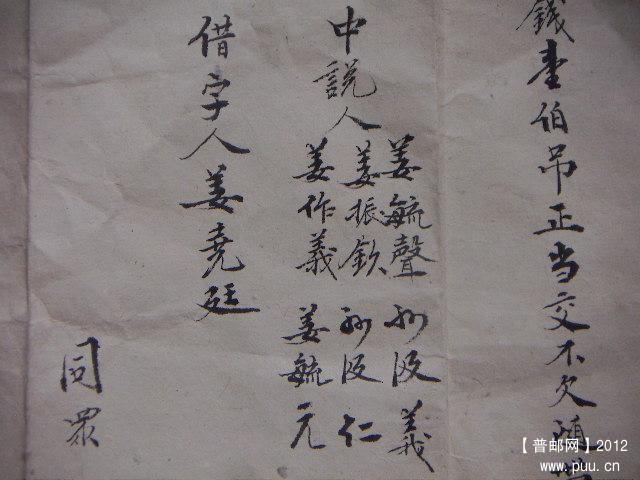 錢壹伯吊正当交不欠隨
中説人
姜毓聲 孙汲義
姜振欽 孙汲仁
姜作義 姜毓元
借字人姜堯廷
同眾
【普邮网】2012
www.puu.cn